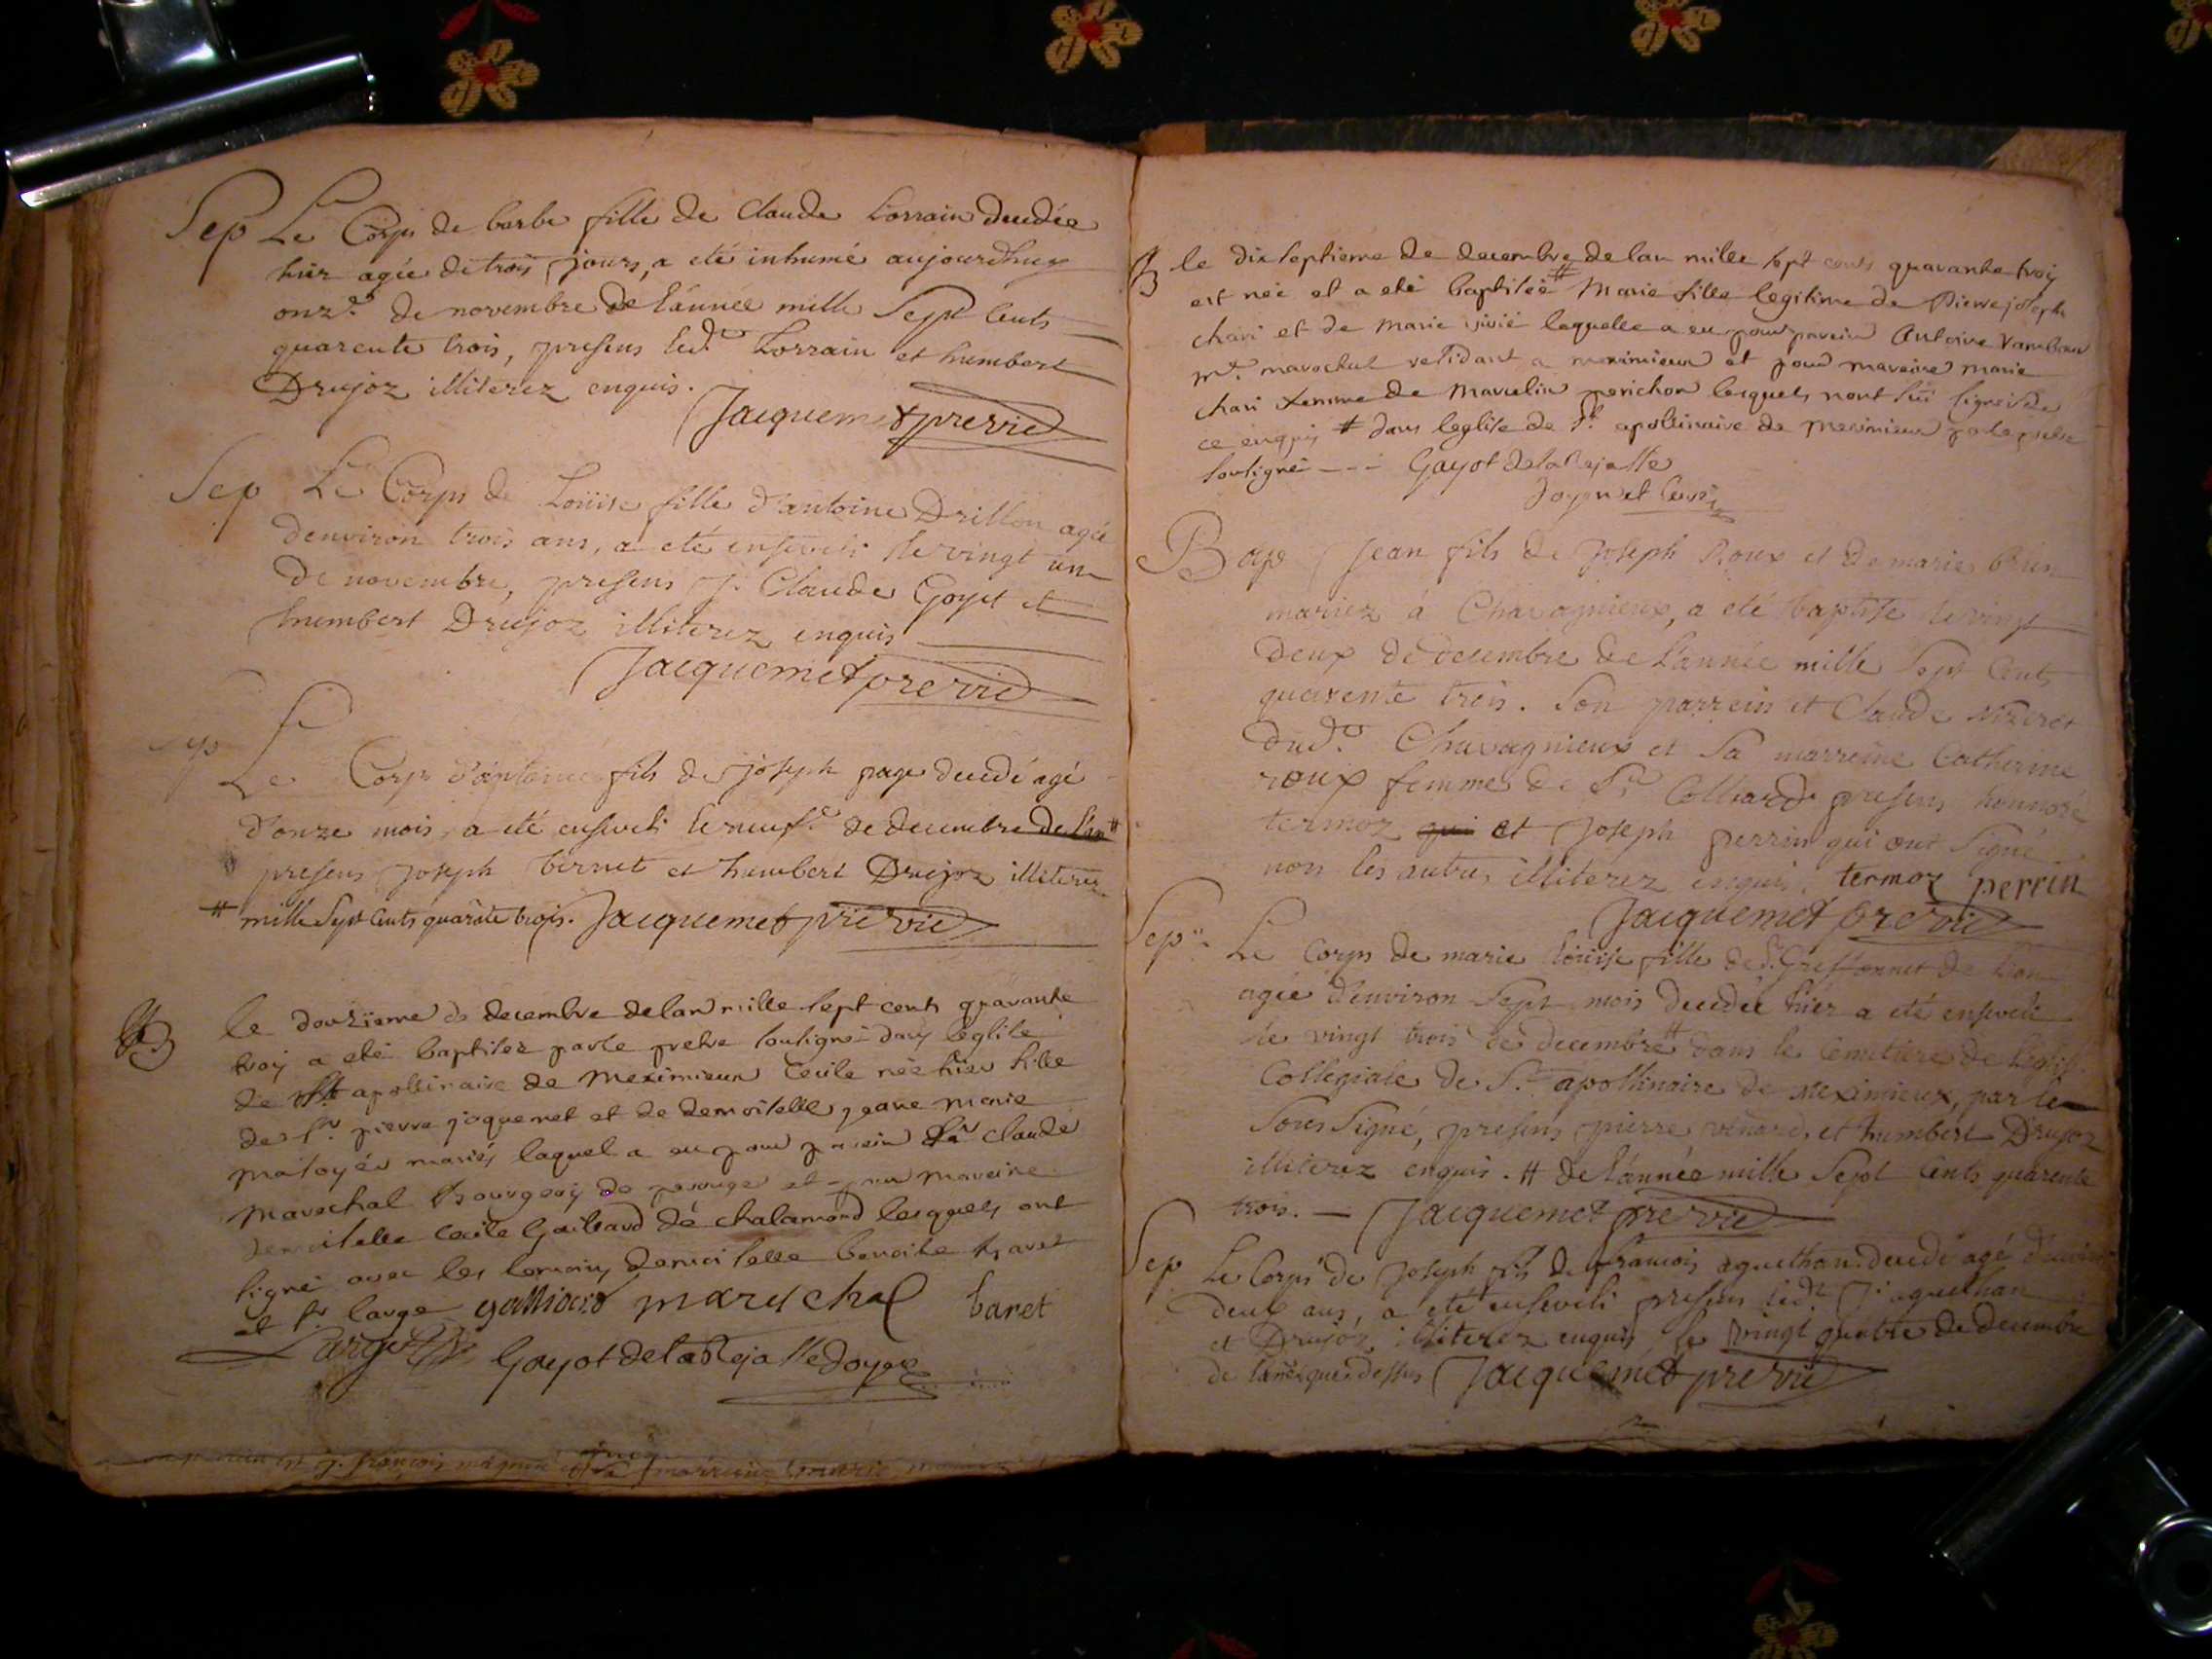 Sep Le Corps de barbe fille de Claude Lorrain decedée
hier agée de trois jours, a eté inhumé aujourdhuy
onz.e de novembre de l'année mille Sept Cents
quarente trois, presens led.t Lorrain et humbert
Drujoz illiterez enquis.
Jacquemet pre vic
Sep Le Corps de Loüise fille d'antoine Drillon agée
denviron trois ans, a eté enseveli le vingt un
de novembre, presens J. Claude Goyet et
humbert Drujoz illiterez enquis
Jacquemet pre vic
Sep
Le Corps d'antoine fils de joseph page decedé agé
d'onze mois, a eté enseveli le neuf.e de decembre de l'an #
presens joseph bernet et humbert Drujoz illiterez
# mille Sept Cents quarate trois. Jacquemet pre vic
B le douzieme de decembre de lan mille sept cents quarante
troy a eté baptisée par le pretre soussigné dans leglise
de St apollinaire de Meximieux Cecile née hier fille
de sr. pierre jaquemet et de demoiselle jeane marie
matoyér mariés laquel a eu pour parein Sr claude
marechal Bourgeoy de perouge et pour mareine
demoiselle Cecile Gailiard de chalamond lesquels ont
signé avec les temoins demoiselle benoite baret
et sr. large galliard marechal baret
Large Gayot de la Rejasse doyen
parein est j. françois et sa marreine marie
B le dix septieme de decembre de lan mille sept cents quarante troy
est née et a eté baptisée # Marie fille legitime de Pierre joseph
chari et de Marie vivié laquelle a eu pour parein Antoine
m.e marechal residant a meximieux et pour mareine Marie
chari femme de Marcelin perichon lesquels nont sçu signer de
ce enquis # dans leglise de St. apollinaire de Meximieux par le pretre
soussigné - - - Gayot de la Rejasse
doyen et curé
Bap Jean fils de Joseph Roux et de marie brun
mariez á Chavagnieux, a eté baptisé le vingt
deux de decembre de l'année mille Sept Cents
quarente trois. Son parrein est Claude Nizeret
dud.t Chavagnieux et Sa marreine Catherine
roux femme de Sr Colliard presens honnoré
termoz qui et Joseph perrin qui ont Signé
non les autres illiterez enquis. termoz perrin
Jacquemet pre vic
Sep.re Le Corps de marie loüise fille de Sr. de lion
agée denviron Sept mois decedée hier a eté enseveli
le vingt trois de decembre # dans le cemetiere de l'eglise
Collegiale de St apollinaire de Meximieux, par le
Sous Signé, presens pierre venard, et humbert Drujoz
illiterez enquis. # de l'année mille Sept Cents quarente
trois. — Jacquemet pre vic
Sep Le Corps de Joseph fils de francois aguethan decedé agé d'environ
deux ans, a eté enseveli presens led.t f. aguethan
et Drujoz illiterez enquis le vingt quatre de decembre
de l'année que dessus Jacquemet pre vic